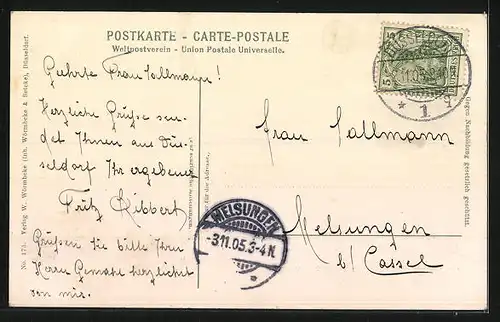 POSTKARTE - CARTE-POSTALE
Weltpostverein - Union Postale Universelle.
Geehrte Frau Sallmann!
Herzliche Grüße sen-
det Ihnen aus Düs-
seldorf Ihr ergebener
Fritz Hibbert
Grüßen Sie bitte Ihren
Herrn Gemahl herzlichst
von mir.
Frau Sallmann
Melsungen
b/ Cassel
MELSUNGEN
-3.11.05.3-4N.
5 5
11.05
* 1
No. 173. Verlag W. Wörmbcke (Inh. Wörmbcke & Brücke), Düsseldorf.
für die Adresse.
Gegen Nachbildung gesetzlich geschützt.